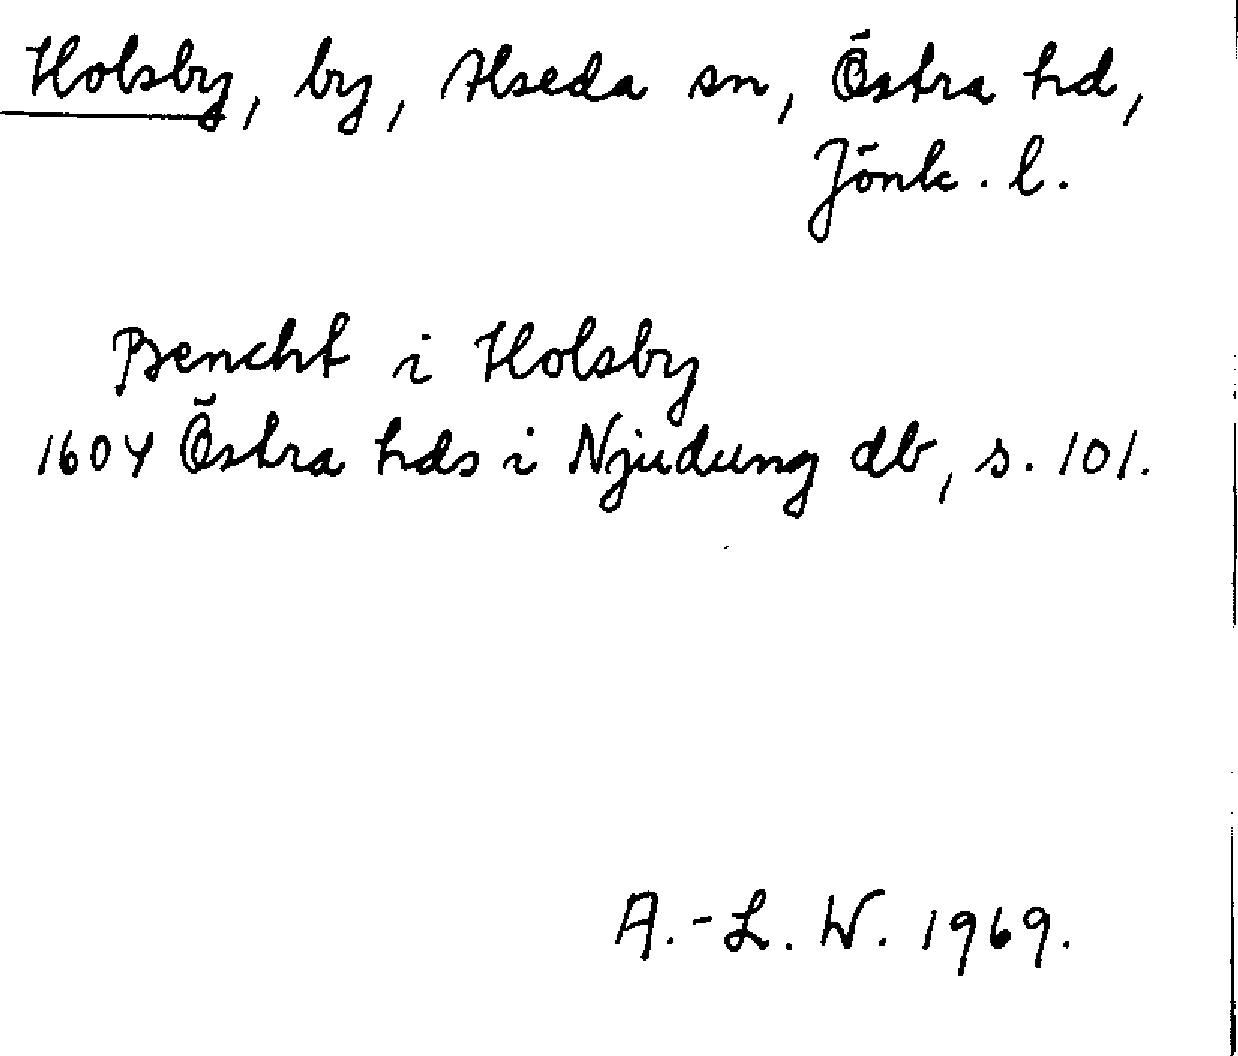 Holsby, by, Alseda sn, Östra hd,
Jönk. l.
Bencht i Holsby
1604 Östra hds i Njudung db, s. 101.
A.-L. W. 1969.